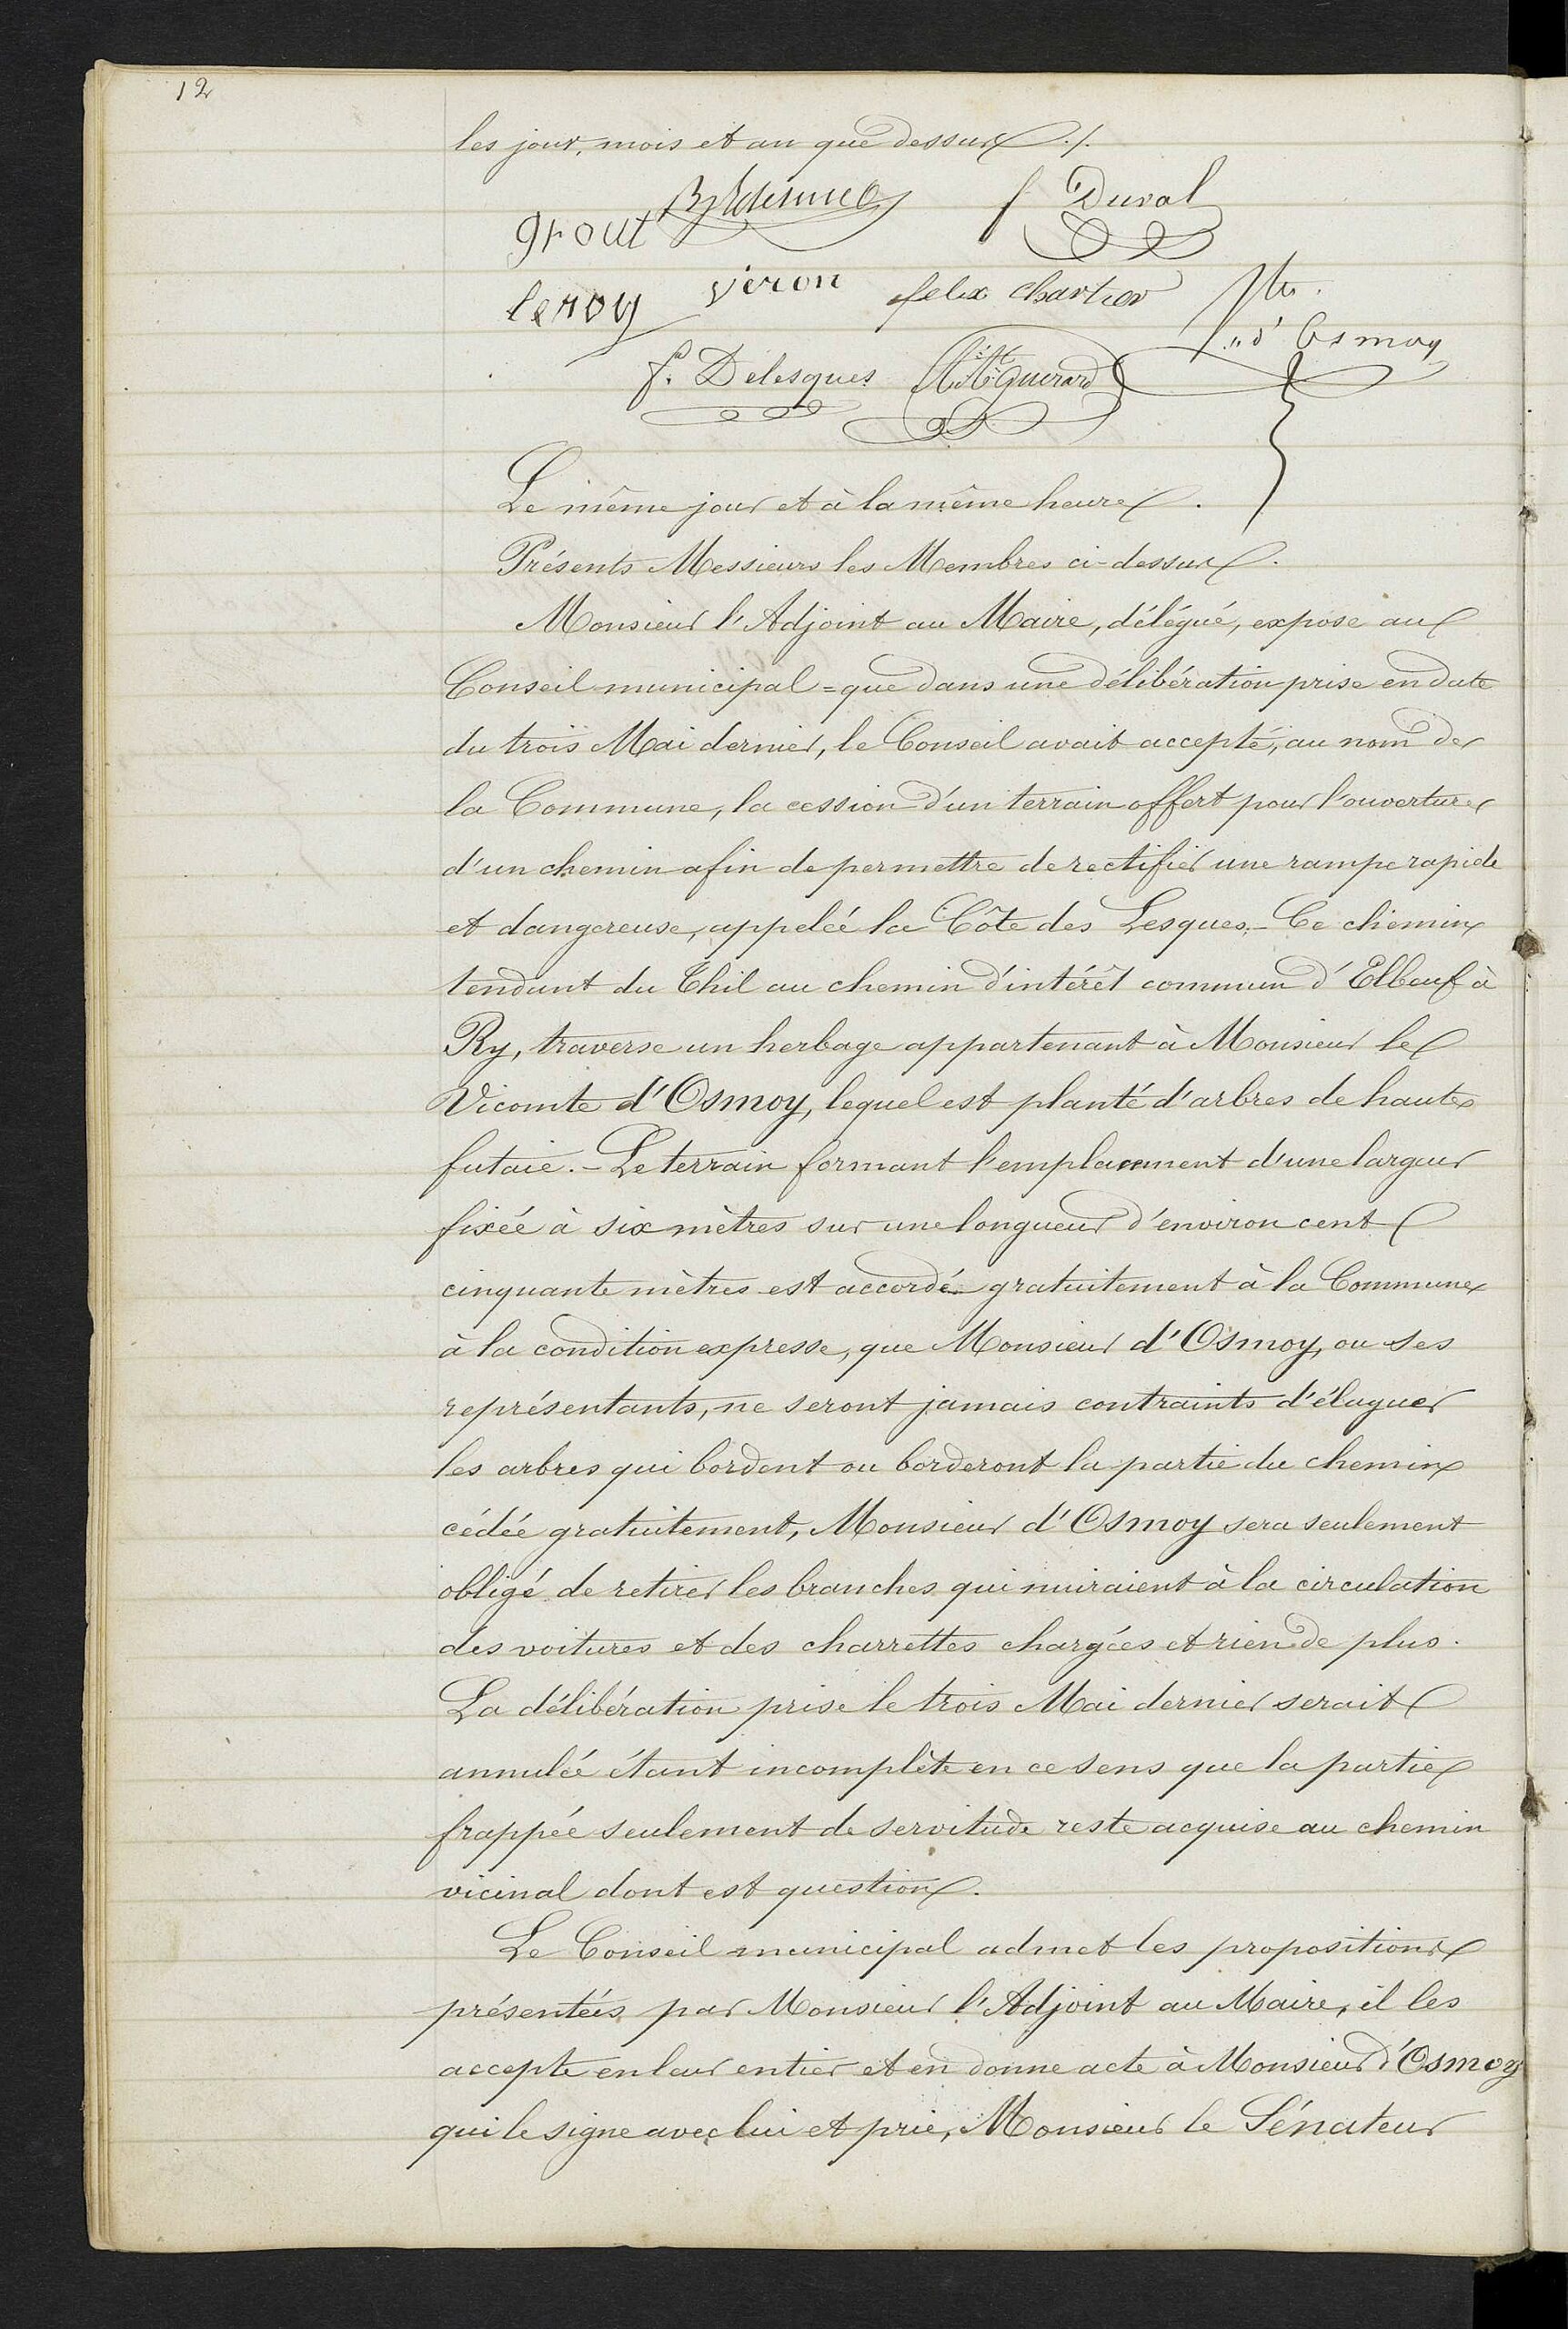 12
les jour, mois et an que dessus ./.
f Duval
grout
leroy veron felix chartier
d'Osmoy
f. Delesques Guerard
Le même jour et à la même heure.
Présents Messieurs les Membres ci-dessus.
Monsieur l'Adjoint au Maire, délégué, expose au
Conseil municipal = que dans une délibération prise en date
du trois Mai dernier, le Conseil avait accepté, au nom de
la Commune, la cession d'un terrain offert pour l'ouverture
d'un chemin afin de permettre de rectifier une rampe rapide
et dangereuse, appelée la Côte des Lesques. - Ce chemin
tendant du Thil au chemin d'intérêt commun d'Elbeuf à
Ry, traverse un herbage appartenant à Monsieur le
Vicomte d'Osmoy, lequel est planté d'arbres de haute
futaie. - Le terrain formant l'emplacement d'une largeur
fixée à six mètres sur une longueur d'environ cent
cinquante mètres est accordé gratuitement à la Commune
à la condition expresse, que Monsieur d'Osmoy, ou ses
représentants, ne seront jamais contraints d'élaguer
les arbres qui bordent ou borderont la partie du chemin
cédée gratuitement, Monsieur d'Osmoy sera seulement
obligé de retirer les branches qui nuiraient à la circulation
des voitures et des charrettes chargées et rien de plus.
La délibération prise le trois Mai dernier serait
annulée étant incomplète en ce sens que la partie
frappée seulement de servitude reste acquise au chemin
vicinal dont est question.
Le Conseil municipal admet les propositions
présentées par Monsieur l'Adjoint au Maire, il les
accepte en leur entier et en donne acte à Monsieur d'Osmoy
qui le signe avec lui et prie, Monsieur le Sénateur